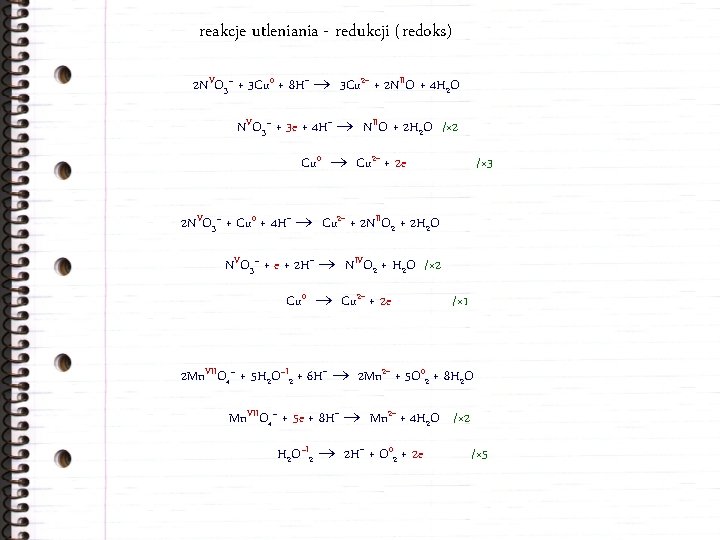 reakcje utleniania - redukcji (redoks)
2NⱽO₃⁻ + 3Cu⁰ + 8H⁺ → 3Cu²⁺ + 2NᴵᴵO + 4H₂O
NⱽO₃⁻ + 3e + 4H⁺ → NᴵᴵO + 2H₂O /×2
Cu⁰ → Cu²⁺ + 2e /×3
2NⱽO₃⁻ + Cu⁰ + 4H⁺ → Cu²⁺ + 2NᴵᴵO₂ + 2H₂O
NⱽO₃⁻ + e + 2H⁺ → NᴵⱽO₂ + H₂O /×2
Cu⁰ → Cu²⁺ + 2e /×1
2MnⱽᴵᴵO₄⁻ + 5H₂O⁻ᴵ₂ + 6H⁺ → 2Mn²⁺ + 5O⁰₂ + 8H₂O
MnⱽᴵᴵO₄⁻ + 5e + 8H⁺ → Mn²⁺ + 4H₂O /×2
H₂O⁻ᴵ₂ → 2H⁺ + O⁰₂ + 2e /×5